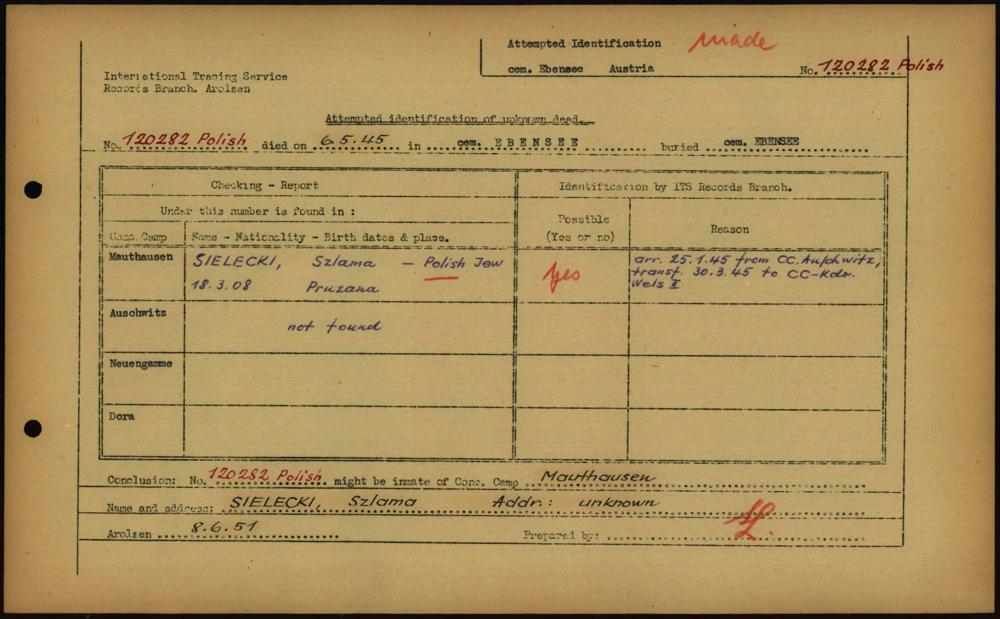 Attempted Identification made
cem. Ebensee Austria No. 120282 Polish
International Tracing Service
Records Branch. Arolsen
Attempted identification of unknown dead.
No. 120282 Polish died on 6.5.45 in cem. EBENSEE buried cem. EBENSEE
Checking - Report
Identification by ITS Records Branch.
Under this number is found in :
Possible
(Yes or no)
Reason
Conc. Camp Name - Nationality - Birth dates & place.
Mauthausen SIELECKI, Szlama - Polish Jew
18.3.08 Pruzana
yes
arr. 25.1.45 from CC. Auschwitz;
transf. 30.3.45 to CC-Kdo.
Wels II
Auschwitz not found
Neuengamme
Dora
Conclusion: No. 120282 Polish might be inmate of Conc. Camp Mauthausen
Name and address: SIELECKI, Szlama Addr.: unknown
Arolsen 8.6.51 Prepared by: